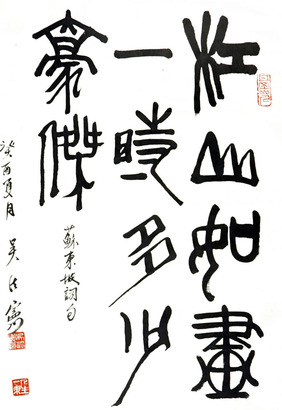 江山如畫
一時多少
豪傑
蘇東坡詞句
癸酉夏月